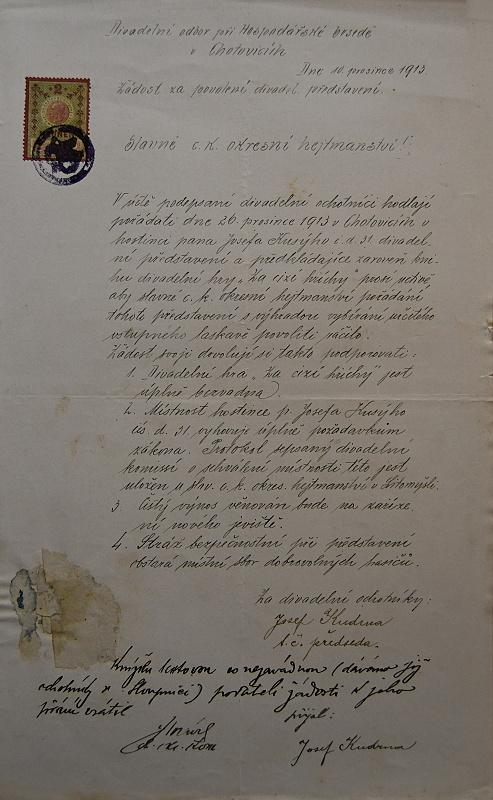 Divadelní odbor při Hospodářské besedě
v Chotovicích
Dne 10. prosince 1913.
Žádost za povolení divadel. představení.
2
Slavné c. k. okresní hejtmanství!
V úctě podepsaní divadelní ochotníci hodlají
pořádati dne 26. prosince 1913 v Chotovicích v
hostinci pana Josefa Kusýho č. d. 31. divadel-
ní představení a předkládajíce zároveň kni-
hu divadelní hry „Za cizí hříchy“ prosí uctivě
aby slavné c. k. okresní hejtmanství pořádání
tohoto představení s výhradou vybírání určitého
vstupného laskavě povoliti ráčilo.
Žádost svoji dovolují si takto podporovati:
1. Divadelní hra „Za cizí hříchy“ jest
úplně bezvadna.
2. Místnost hostince p. Josefa Kusýho
čís. d. 31. vyhovuje úplně požadavkům
zákona. Protokol sepsaný divadelní
komisí o schválení místnosti této jest
uložen u slav. c. k. okres. hejtmanství v Litomyšli.
3. Čistý výnos věnován bude na zaříze-
ní nového jeviště.
4. Stráž bezpečnostní při představení
obstará místní sbor dobrovolných hasičů.
Za divadelní ochotníky:
Josef Kudrna
t. č. předseda.
co nezávadnou (dávána již
ochotníky v Sloupnici) podateli žádosti k jeho
přání vrátil
přijal:
Josef Kudrna